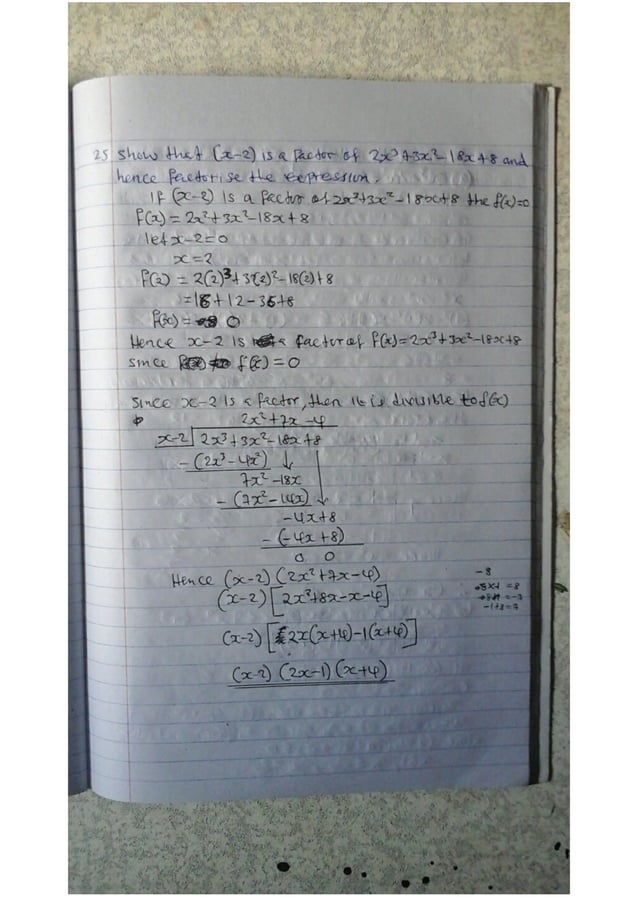 25 show that (x-2) is a factor of 2x³+3x²-18x+8 and
hence factorise the expression.
If (x-2) is a factor of 2x³+3x²-18x+8 the f(x)=0
f(x) = 2x³+3x²-18x+8
let x-2=0
x=2
f(2) = 2(2)³+3(2)²-18(2)+8
=16+12-36+8
f(x) = 0
Hence x-2 is a factor of f(x)=2x³+3x²-18x+8
since f(x)=0
Since x-2 is a factor, then it is divisible to f(x)
2x²+7x-4
x-2 2x³+3x²-18x+8
-(2x³-4x²) ↓
7x²-18x
-(7x²-14x) ↓
-4x+8
-(-4x+8)
0 0
Hence (x-2)(2x²+7x-4)
-8
(x-2)[2x²+8x-x-4]
-1+8=7
(x-2)[2x(x+4)-1(x+4)]
(x-2)(2x-1)(x+4)